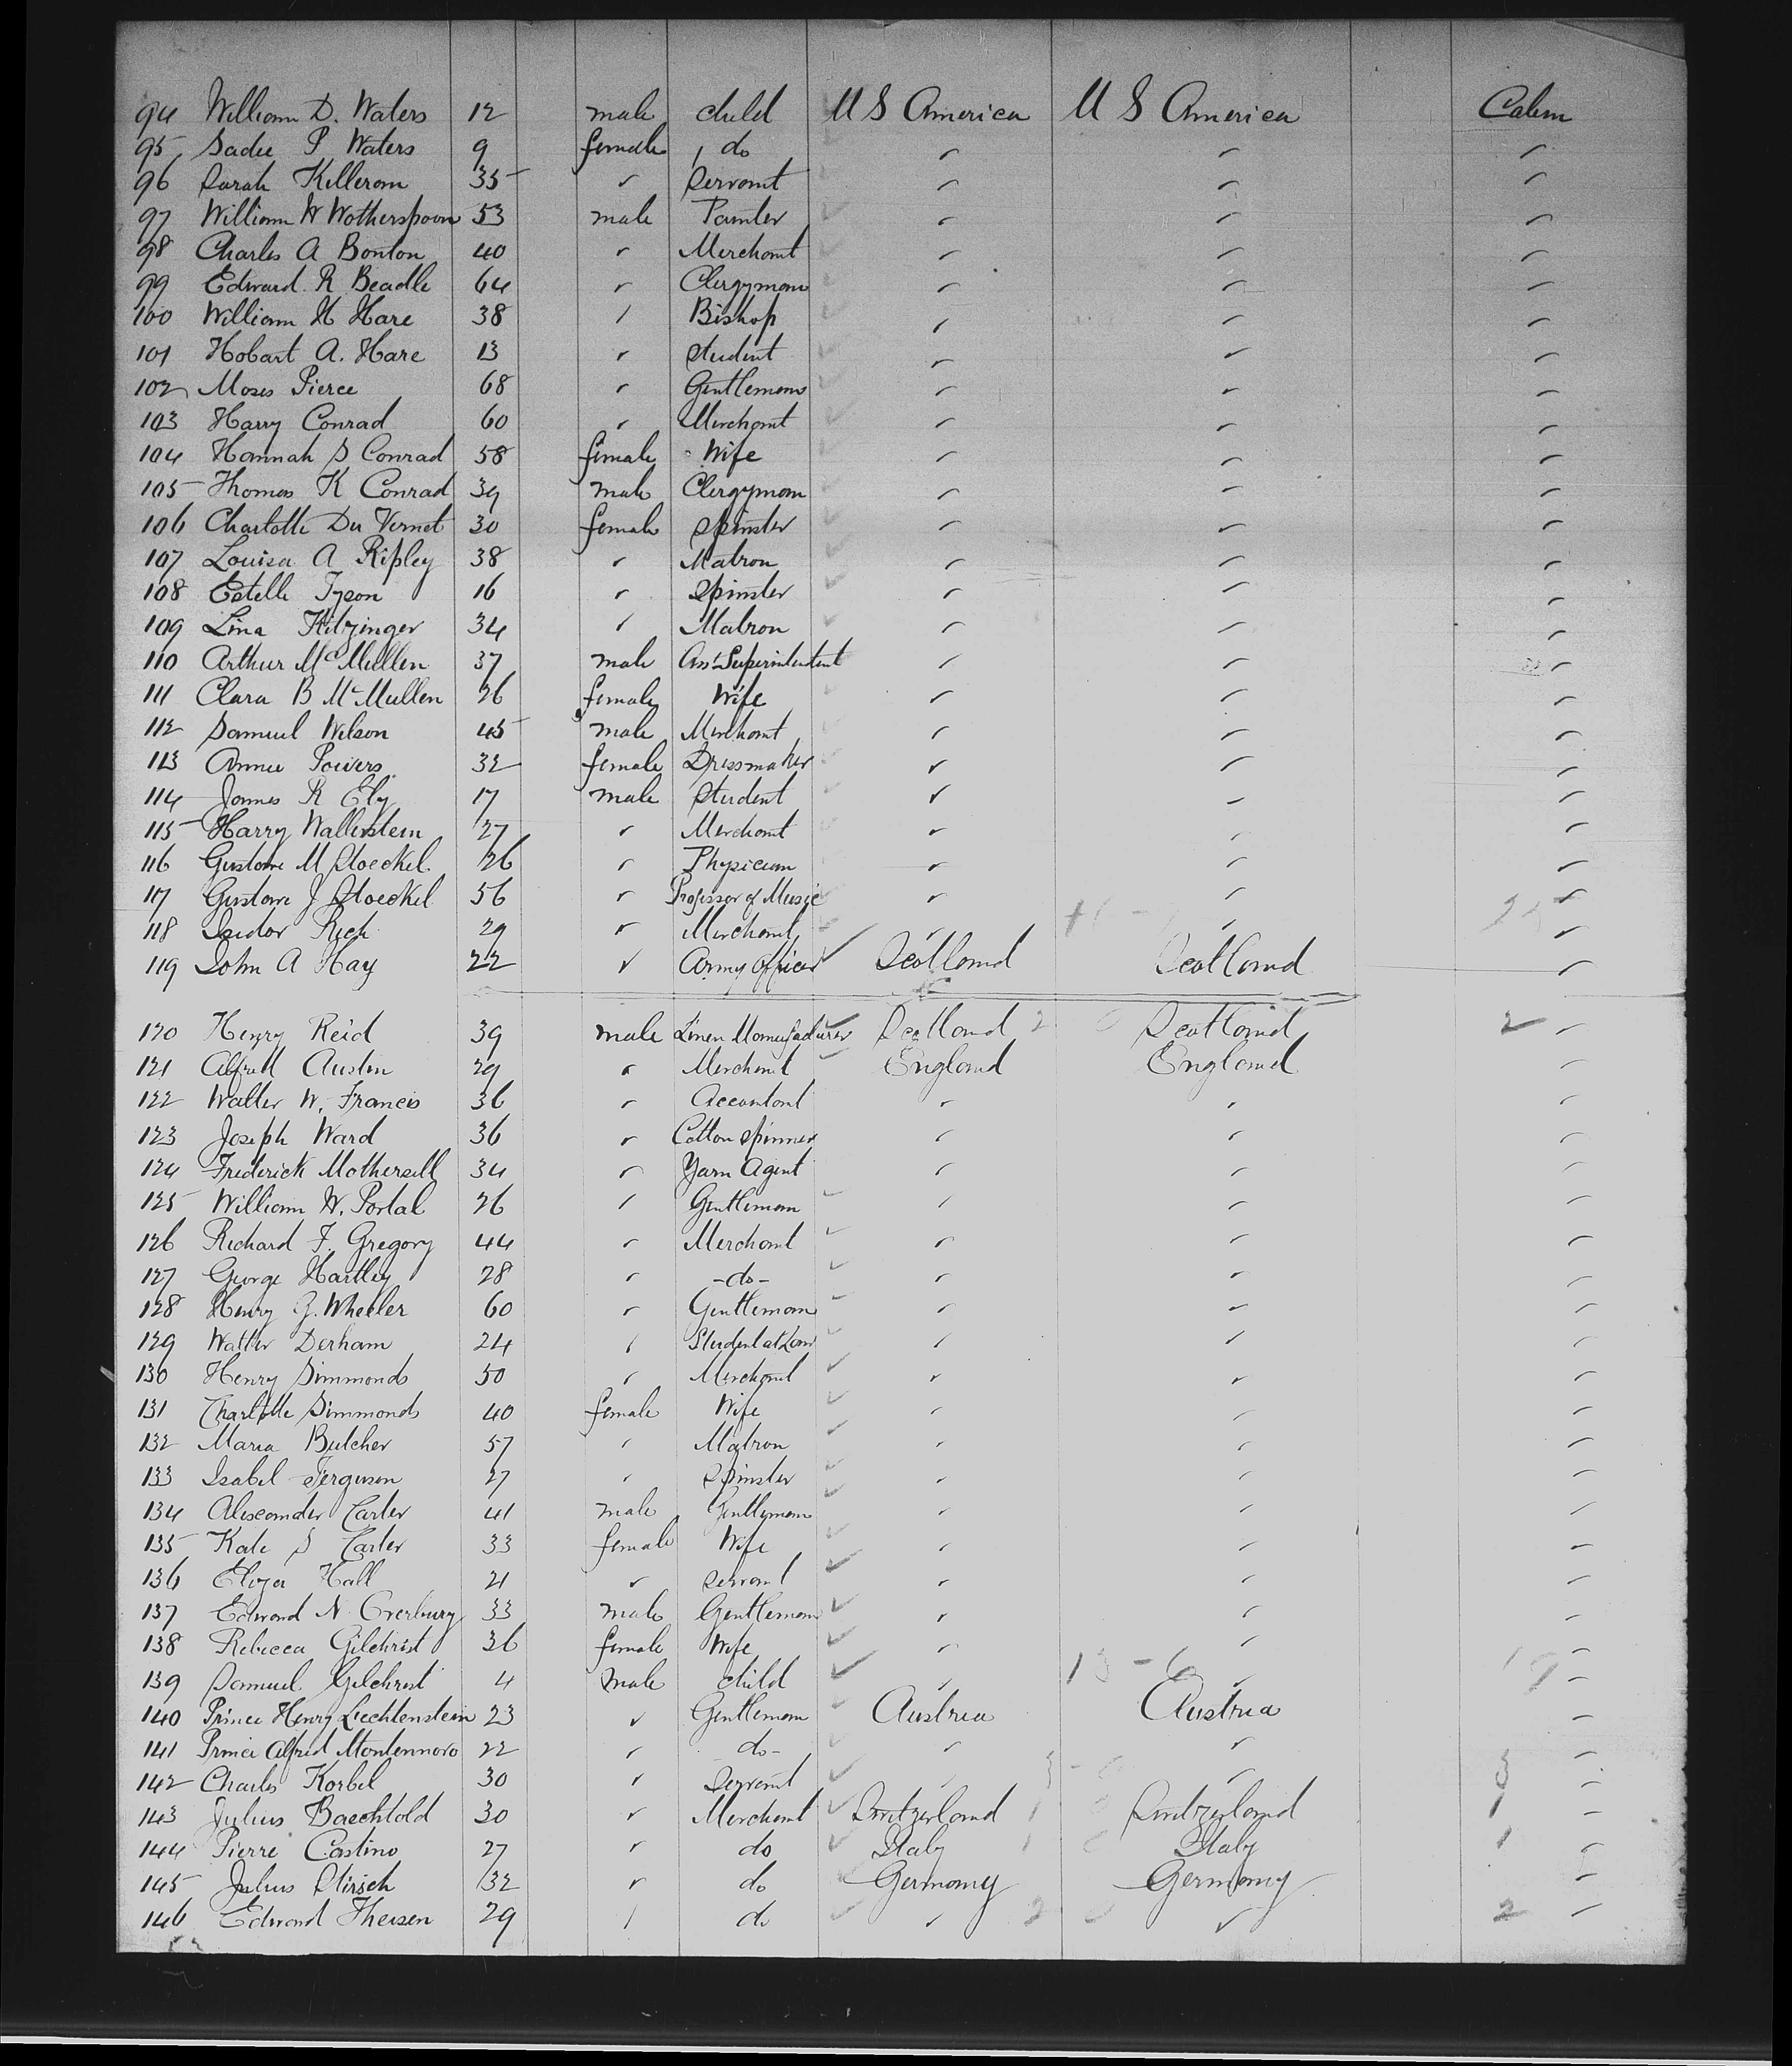 94 William D. Waters 12 male child U S America U S America Cabin
95 Sadie P Waters 9 female do " " "
96 Sarah Killeran 35 " Servant " " "
97 William W Wotherspoon 53 male Painter " " "
98 Charles A Bonton 40 " Merchant " " "
99 Edward R Beadle 64 " Clergyman " " "
100 William H Hare 38 " Bishop " " "
101 Hobart A. Hare 13 " Student " " "
102 Moses Pierce 68 " Gentleman " " "
103 Harry Conrad 60 " Merchant " " "
104 Hannah S Conrad 58 female Wife " " "
105 Thomas K Conrad 39 male Clergyman " " "
106 Charlotte Du Vernet 30 female Spinster " " "
107 Louisa A Ripley 38 " Matron " " "
108 Estelle Tyson 16 " Spinster " " "
109 Lina 34 " Matron " " "
110 Arthur McMullen 37 male Asst Superintendent " " "
111 Clara B McMullen 26 female Wife " " "
112 Samuel Wilson 45 male Merchant " " "
113 Annie Powers 32 female Dressmaker " " "
114 James R Ely 17 male Student " " "
115 Harry Wallerstein 27 " Merchant " " "
116 Gustave M Stoeckel 26 " Physician " " "
117 Gustave J Stoeckel 56 " Professor of Music " " "
118 Isidor Rich 29 " Merchant " " "
119 John A Hay 22 " Army Officer Scotland Scotland "
120 Henry Reid 39 male Linen Manufacturer Scotland 2 Scotland 2 "
121 Alfred Austin 29 " Merchant England England "
122 Walter W. Francis 36 " Accountant " " "
123 Joseph Ward 36 " Cotton Spinner " " "
124 Frederick Mothersill 34 " Yarn Agent " " "
125 William W. Portal 26 " Gentleman " " "
126 Richard F. Gregory 44 " Merchant " " "
127 George Hartley 28 " -do- " " "
128 Henry G. Wheeler 60 " Gentleman " " "
129 Walter Derham 24 " Student at Law " " "
130 Henry Simmonds 50 " Merchant " " "
131 Charlotte Simmonds 40 female Wife " " "
132 Maria Butcher 57 " Matron " " "
133 Isabel Ferguson 27 " Spinster " " "
134 Alexander Carter 41 male Gentleman " " "
135 Kate S Carter 33 female Wife " " "
136 Eliza Hall 21 " Servant " " "
137 Edward N Overbury 33 male Gentleman " " "
138 Rebecca Gilchrist 36 female Wife " " "
139 Samuel Gilchrist 4 male child " " "
140 Prince Henry Liechtenstein 23 " Gentleman Austria Austria "
141 Prince Alfred Montenuovo 22 " do- " " "
142 Charles Korbel 30 " Servant " 3 " 3 "
143 Julius Baechtold 30 " Merchant Switzerland 1 Switzerland 1 "
144 Pierre Castino 27 " do Italy 1 Italy 1 "
145 Julius Stirsch 32 " do Germany Germany "
146 Edward Theisen 29 " do " 2 " 2 "